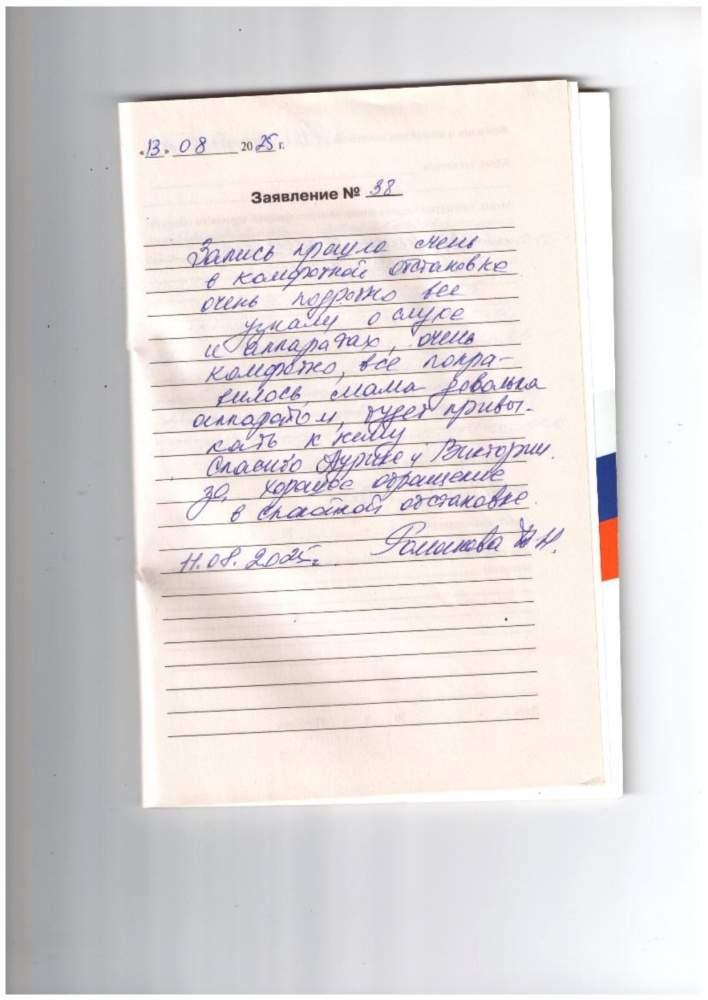 «13» 08 2025 г.
Заявление № 38
Запись прошла очень
в комфотной обстановке
очень подротно все
узнали о слухе
и аппаратах, очень
комфотно, все понра-
вилось, мама довольна
аппаратом, будет привы-
кать к нему
Спасибо и Виктории
за хорошее обращение
в спокойной обстановке.
11.08.2025г. Романова Н.